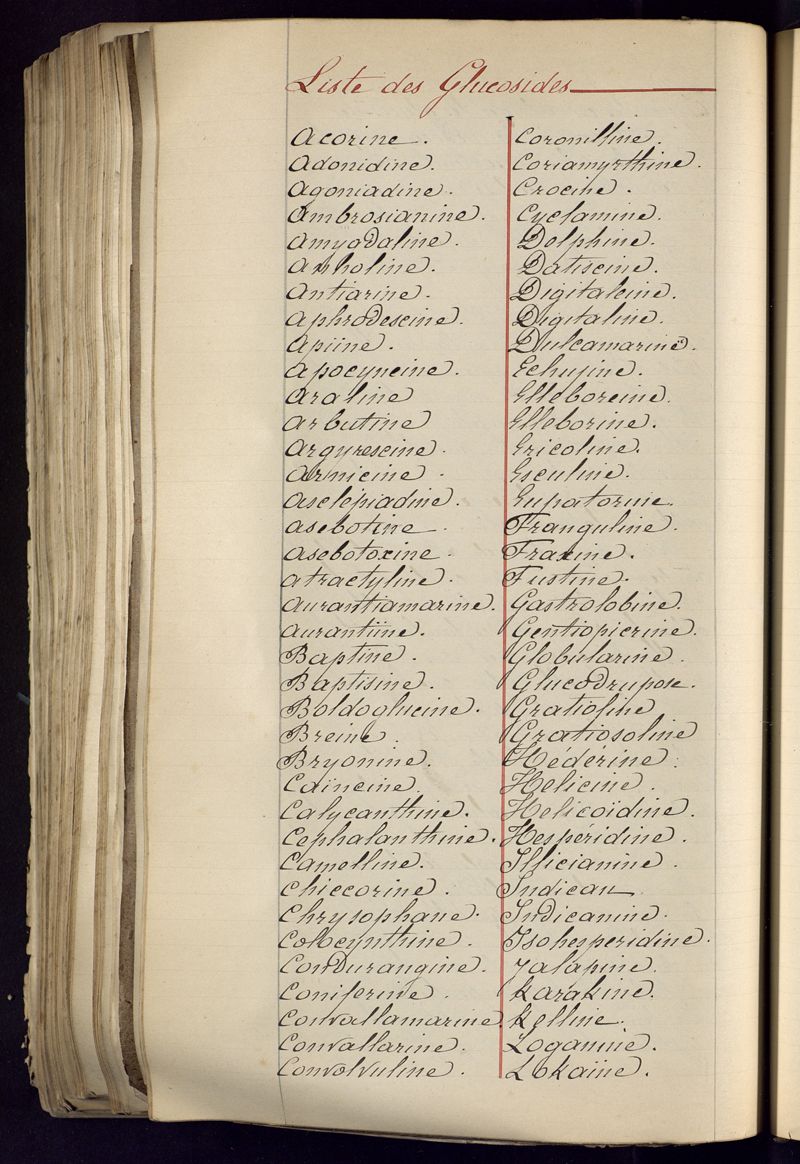 Liste des Glucosides
Acorine.
Adonidine.
Agoniadine.
Ambrosianine.
Amygdaline.
Anholine.
Antiarine.
Aphrodescine.
Apiine.
Apocyneine.
Araline
Arbutine
Argyrescine.
Arnicine.
Asclépiadine.
Asebotine.
Asebotoxine.
Atractyline.
Aurantiamarine.
Aurantiine.
Baptine.
Baptisine.
Boldoglucine.
Breine.
Bryonine.
Caïncine.
Calycanthine.
Cephalanthine.
Camelline.
Chiccorine.
Chrysophane.
Colocynthine.
Condurangine.
Coniferine.
Convallamarine.
Convallarine.
Convolvuline.
Coronilline.
Coriamyrthine.
Crocine.
Cyclamine.
Delphine.
Datiscine.
Digitaleine.
Digitaline.
Dulcamarine.
Echujine.
Elleboreine.
Elleborine.
Ericoline.
Esculine.
Eupatorine.
Franguline.
Fraxine.
Fustine.
Gastrolobine.
Gentiopicrine.
Globularine.
Glucodrupose.
Gratioline
Gratiosoline
Hédérine.
Helicine.
Helicoïdine.
Hespéridine.
Illicianine.
Indican
Indicanine.
Isohesperidine.
Jalapine.
Karakine.
Kelline.
Loganine.
Lokaïne.